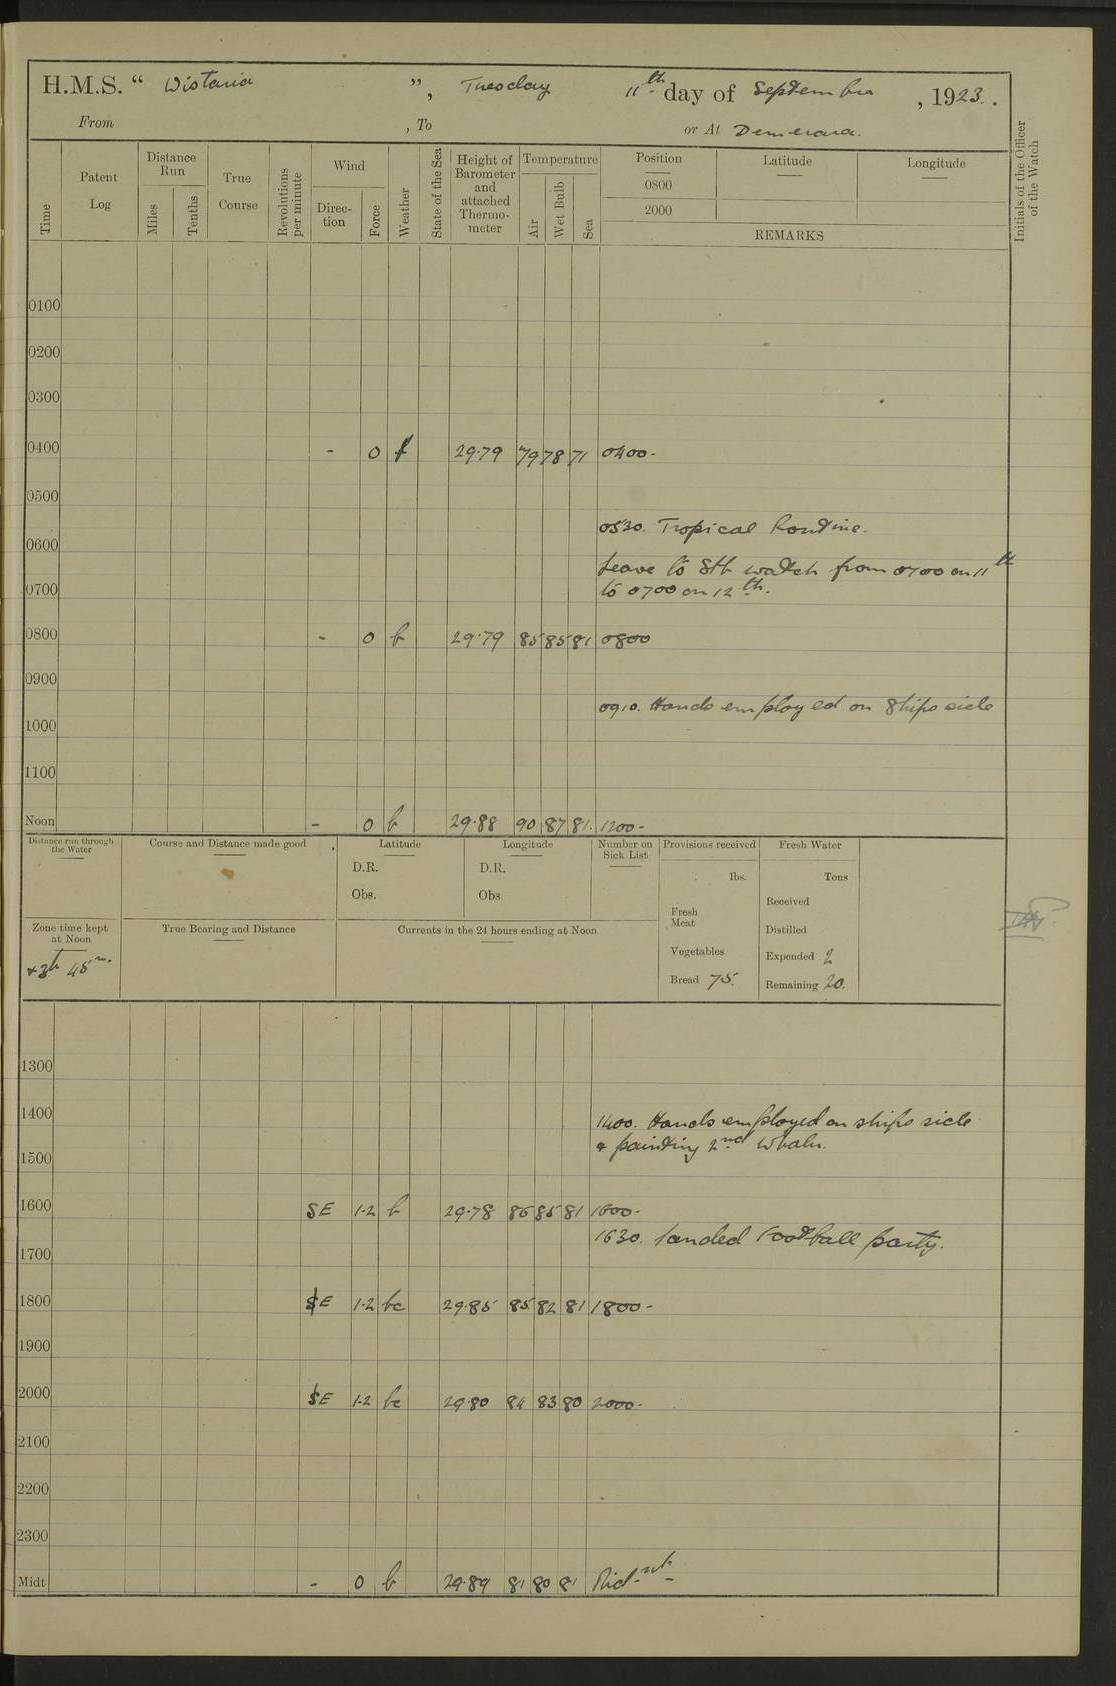 H.M.S. “ Wistaria ”, Tuesday 11th day of September, 1923.
From , To or At Demerara.
Time
Patent Log
Distance Run
Miles
Tenths
True Course
Revolutions per minute
Wind
Direc-tion
Force
Weather
State of the Sea
Height of Barometer and attached Thermo-meter
Temperature
Air
Wet Bulb
Sea
Position Latitude Longitude
0800
2000
REMARKS
Initials of the Officer of the Watch
0100
0200
0300
0400 - 0 f 29.79 79 78 71 0400-
0500
0530. Tropical Routine.
0600
Leave to Stb watch from 0700 on 11th
0700 to 0700 on 12th.
0800 - 0 b 29.79 85 85 81 0800
0900
0910. Hands employed on Ships side
1000
1100
Noon - 0 b 29.88 90 87 81. 1200-
Distance run through the Water
Course and Distance made good
Latitude
D.R.
Obs.
Longitude
D.R.
Obs
Number on Sick List
Provisions received
lbs.
Fresh Meat
Vegetables
Bread 75.
Fresh Water
Tons
Received
Distilled
Expended 2
Remaining 20.
Zone time kept at Noon
+3h 45m.
True Bearing and Distance
Currents in the 24 hours ending at Noon
1300
1400 1400. Hands employed on ships side
& painting 2nd Whaler.
1500
1600 SE 1-2 b 29.78 86 85 81 1600-
1630. Landed Football party.
1700
1800 SE 1-2 bc 29.85 85 82 81 1800-
1900
2000 SE 1-2 bc 29.80 84 83 80 2000-
2100
2200
2300
Midt - 0 b 29.89 81 80 81 Mid-nt-